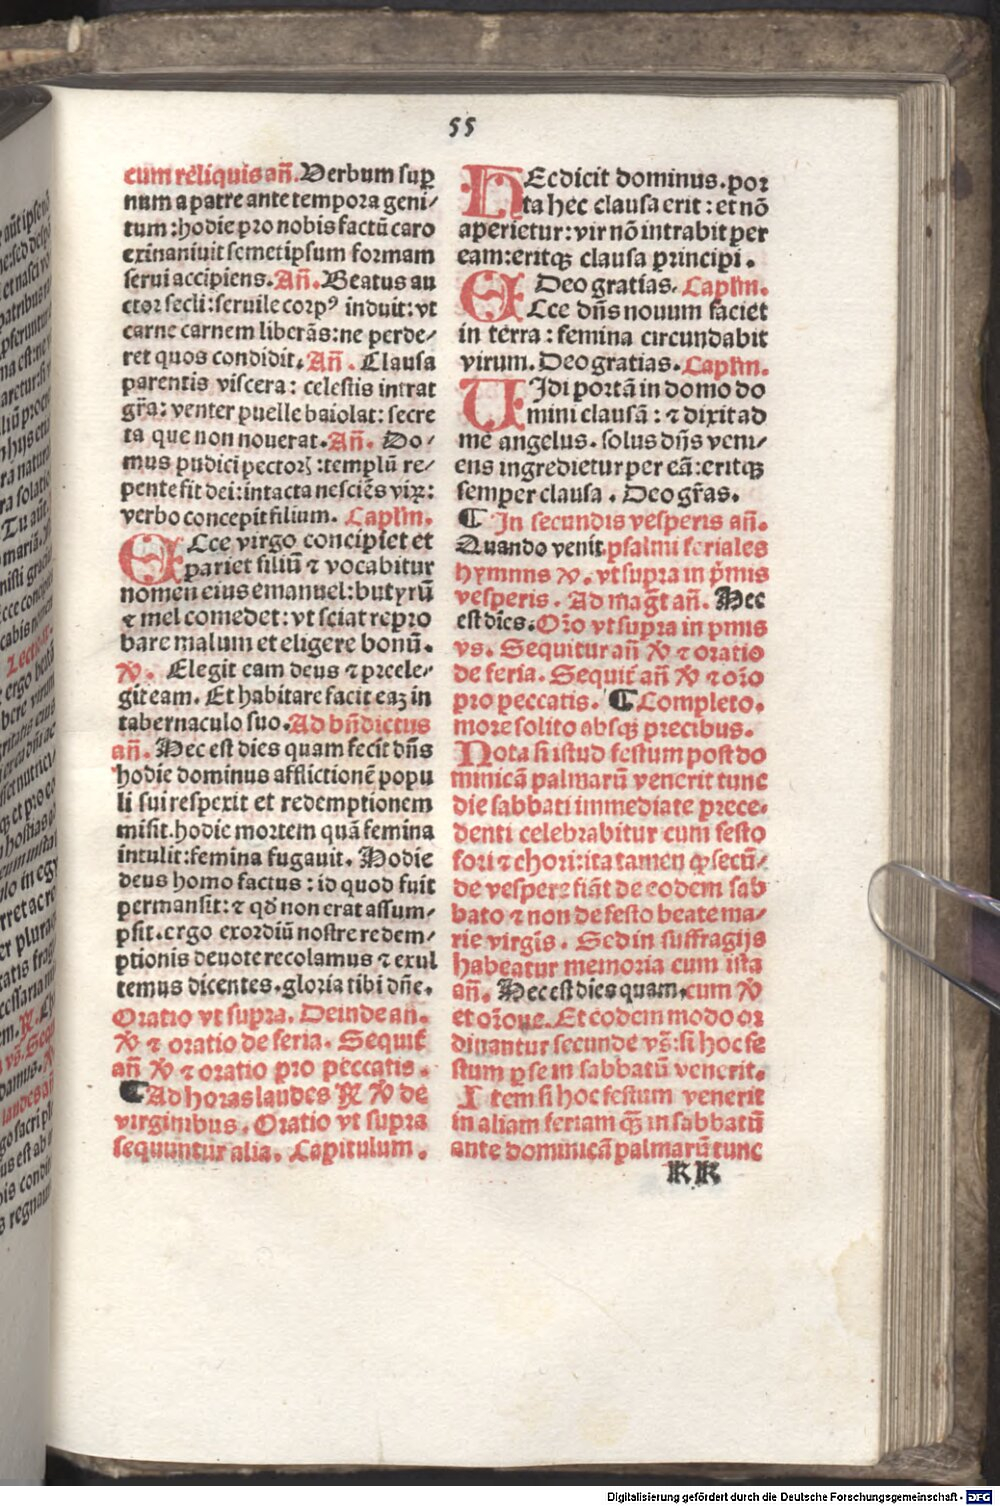 55
cum reliquis an̄. Verbum sup̲
num a patre ante tempora geni/
tum: hodie pro nobis factū caro
exinaniuit semetipsum formam
serui accipiens. An̄. Beatus au
ctor secli: seruile corpꝰ induit: vt
carne carnem liberās: ne perde/
ret quos condidit. An̄. Clausa
parentis viscera: celestis intrat
gr̄a: venter puelle baiolat: secre
ta que non nouerat. An̄. Do/
mus pudici pectoꝝ: templū re/
pente fit dei: intacta nesciēs viꝝ:
verbo concepit filium. Capl'm.
ECce virgo concipiet et
pariet filiū ⁊ vocabitur
nomen eius emanuel: butyrū
⁊ mel comedet: vt sciat repro
bare malum et eligere bonū.
℣. Elegit eam deus ⁊ preele/
git eam. Et habitare facit eaꝫ in
tabernaculo suo. Ad bn̄dictus
an̄. Hec est dies quam fecit dn̄s
hodie dominus afflictionē popu
li sui respexit et redemptionem
misit. hodie mortem quā femina
intulit: femina fugauit. Hodie
deus homo factus: id quod fuit
permansit: ⁊ qd̄ non erat assum/
psit. ergo exordiū nostre redem/
ptionis deuote recolamus ⁊ exul
temus dicentes. gloria tibi dn̄e.
Oratio vt supra. Deinde an̄.
℣ ⁊ oratio de feria. Sequit̄
an̄ ℣ ⁊ oratio pro peccatis.
¶ Ad horas laudes ℟ ℣ de
virginibus. Oratio vt supra
sequuntur alia. Capitulum.
HEc dicit dominus. por
ta hec clausa erit: et nō
aperietur: vir nō intrabit per
eam: eritqꝫ clausa principi.
Deo gratias. Capl'm.
ECce dn̄s nouum faciet
in terra: femina circundabit
virum. Deo gratias. Capl'm.
UIdi portā in domo do
mini clausā: ⁊ dixit ad
me angelus. solus dn̄s veni/
ens ingredietur per eā: eritqꝫ
semper clausa. Deo gr̄as.
¶ In secundis vesperis an̄.
Quando venit. psalmi feriales
hymnus ℣. vt supra in p̄mis
vesperis. Ad maḡt an̄. Hec
est dies. Or̄o vt supra in pmis
vs. Sequitur an̄ ℣ ⁊ oratio
de feria. Sequit̄ an̄ ℣ ⁊ or̄o
pro peccatis. ¶ Completo.
more solito absqꝫ precibus.
Nota si istud festum post do
minicā palmarū venerit tunc
die sabbati immediate prece-
denti celebrabitur cum festo
fori ⁊ chori: ita tamen ꝙ secū/
de vespere fiāt de eodem sab
bato ⁊ non de festo beate ma/
rie virgīs. Sed in suffragijs
habeatur memoria cum ista
an̄. Hec est dies quam. cum ℣
et or̄one. Et eodem modo or
dinantur secunde vs̄: si hoc fe
stum p̲ se in sabbatū venerit.
Item si hoc festum venerit
in aliam feriam qꝫ̄ in sabbatū
ante dominicā palmarū tunc
KK
Digitalisierung gefördert durch die Deutsche Forschungsgemeinschaft - DFG